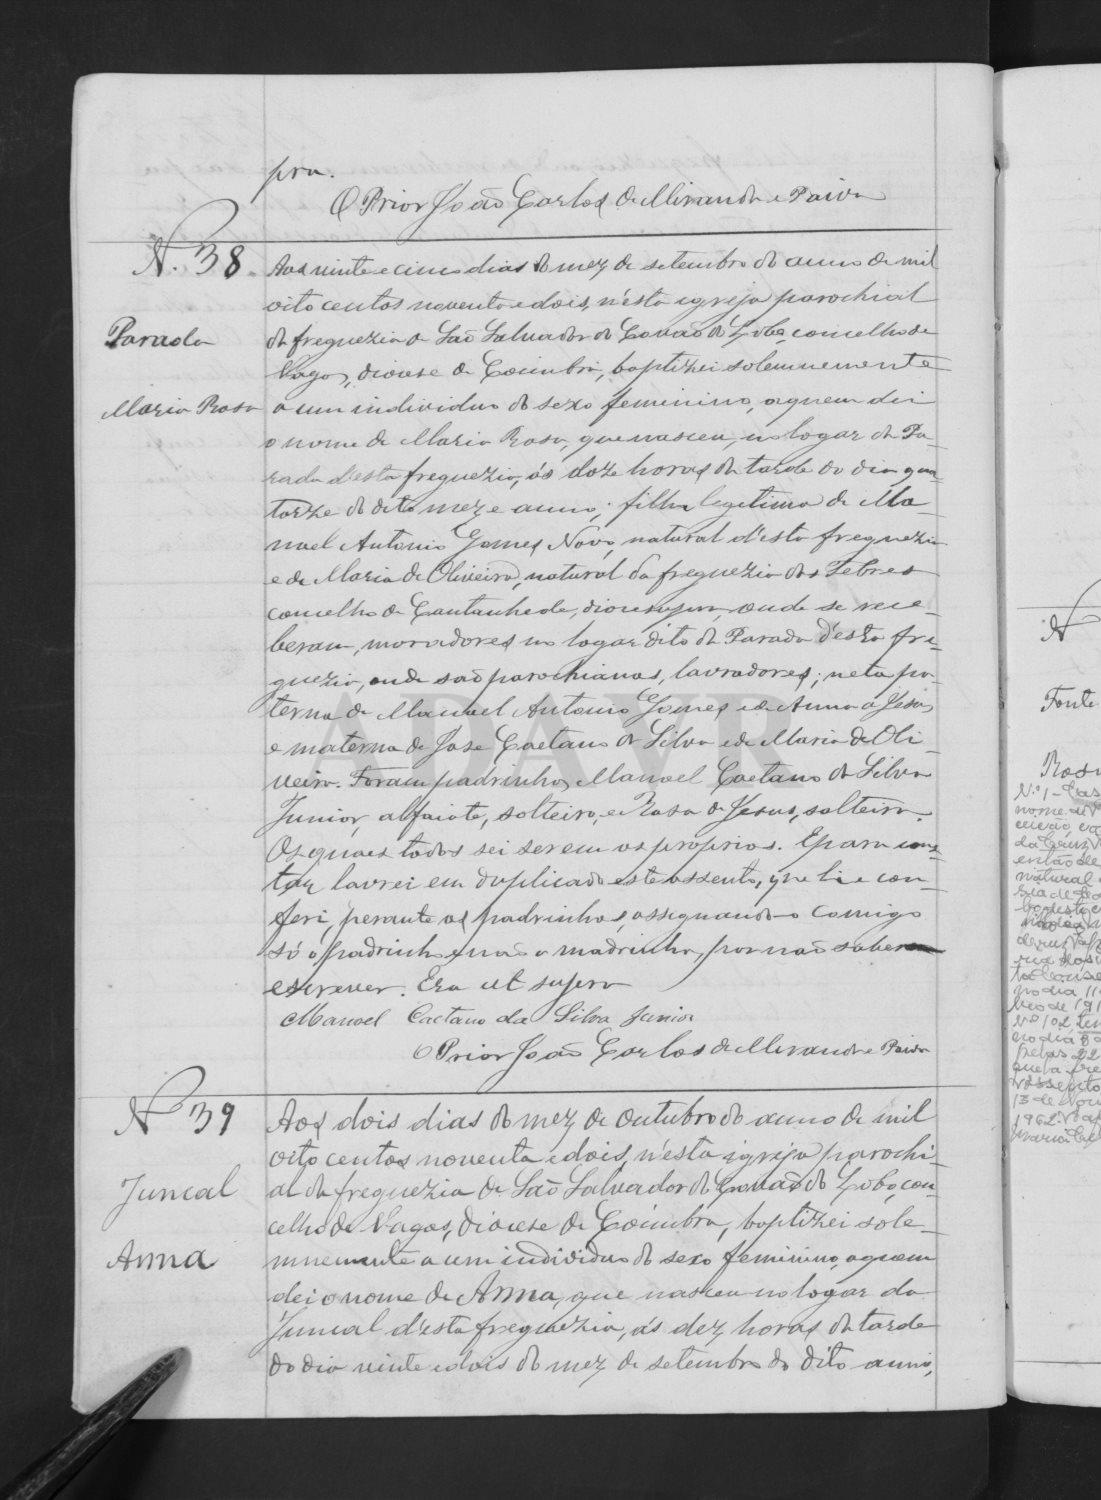 pra.
O Prior João Carlos de Miranda e Paiva
N. 38
Parada
Maria Rosa
Aos vinte e cinco dias do mez de setembro do anno de mil
oito centos noventa e dois, n'esta igreja parochial
da freguezia de São Salvador do Covão do Lobo, concelho de
Vagos, diocese de Coimbra, baptizei solemnemente
a um individuo do sexo feminino, a quem dei
o nome de Maria Rosa, que nasceu, no logar da Pa-
rada d'esta freguezia, ás doze horas da tarde do dia qua-
torze do dito mez e anno; filha legitima de Ma-
noel Antonio Gomes Novo, natural d'esta freguezia
e de Maria de Oliveira, natural da freguezia das Febres
concelho de Cantanhede, diocese supra, onde se rece-
beram, moradores no logar dito da Parada d'esta fre-
guezia, onde são parochianos, lavradores; neta pa-
terna de Manoel Antonio Gomes e de Anna de Jesus,
e materna de Jose Caetano da Silva e de Maria de Oli-
veira. Foram padrinhos Manoel Caetano da Silva
Junior, alfaiate, solteiro, e Rosa de Jesus, solteira.
Os quaes todos sei serem os proprios. E para cons-
tar lavrei em duplicado este assento, que li e con-
feri, perante os padrinhos, assignando-o comigo
só o padrinho e não a madrinha, por não saber
escrever. Era ut supra
Manoel Caetano da Silva Junior
O Prior João Carlos de Miranda e Paiva
N 39
Juncal
Anna
Aos dois dias do mez de outubro do anno de mil
oito centos noventa e dois, n'esta igreja parochi-
al da freguezia de São Salvador do Covão do Lobo, con-
celho de Vagos, diocese de Coimbra, baptizei sole-
mnemente a um individuo do sexo feminino, a quem
dei o nome de Anna, que nasceu no logar do
Juncal d'esta freguezia, ás dez horas da tarde
do dia vinte e dois do mez de setembro do dito anno,
ADAVR
N
Fonte
Rosa